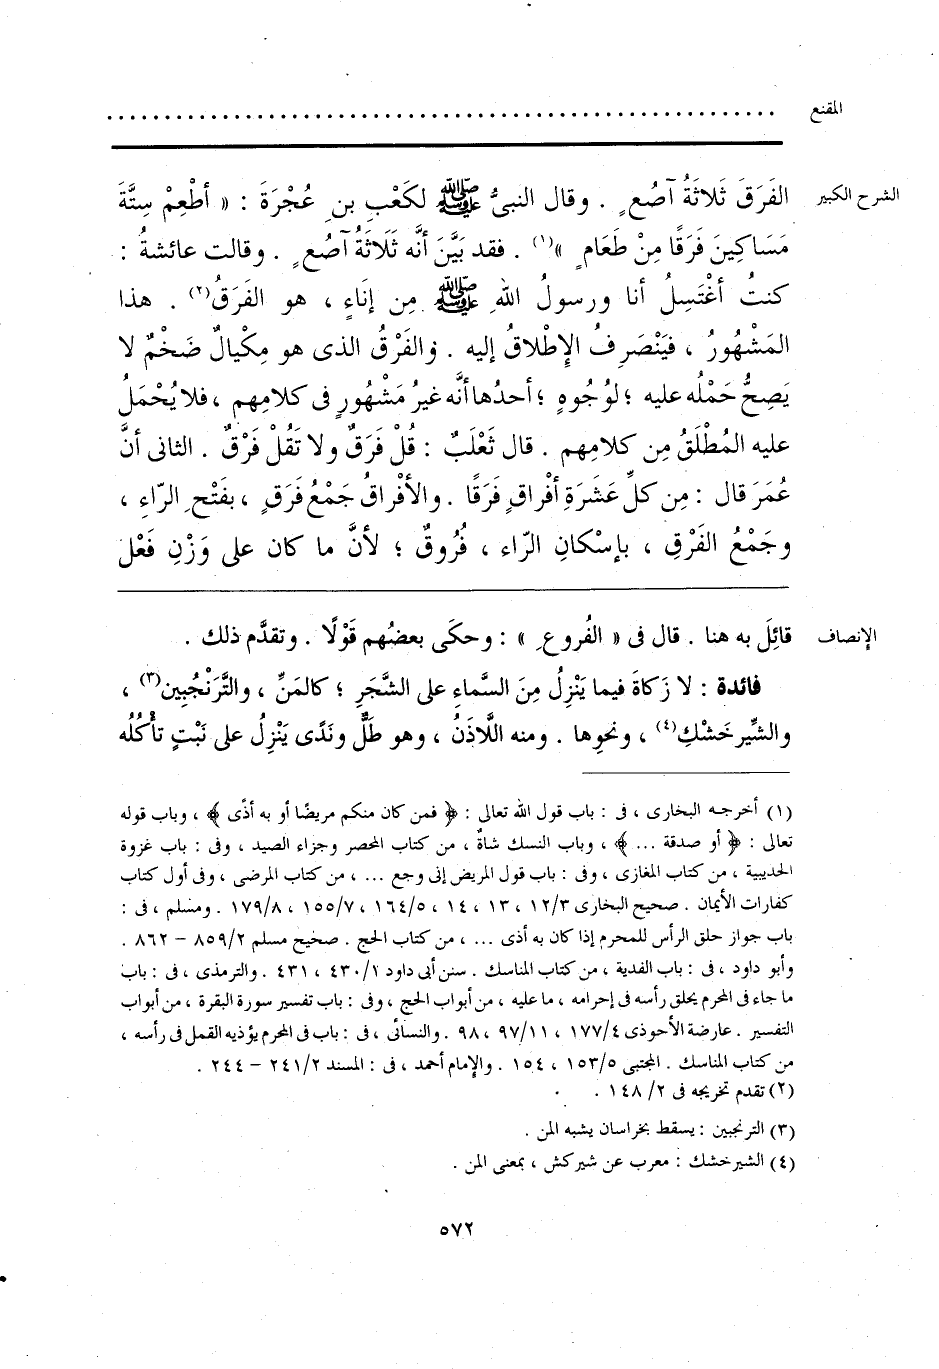 المقنع ........................................................
الشرح الكبير الفَرَقَ ثَلَاثَةُ آصُعٍ . وقال النبىُّ ﷺ لكَعْبِ بنِ عُجْرَةَ : « أطْعِمْ سِتَّةَ
مَسَاكِينَ فَرَقًا مِنْ طَعَامٍ »(١) . فقد بَيَّنَ أنَّه ثَلَاثَةُ آصُعٍ . وقالت عائشةُ :
كنتُ أغْتَسِلُ أنا ورسولُ اللهِ ﷺ مِن إنَاءٍ ، هو الفَرَقُ(٢) . هذا
المَشْهُورُ ، فيَنْصَرِفُ الإِطْلاقُ إليه . والفَرْقُ الذى هو مِكْيالٌ ضَخْمٌ لا
يَصِحُّ حَمْلُه عليه ؛ لوُجُوهٍ ؛ أحدُها أنَّه غيرُ مَشْهُورٍ فى كلامِهم ، فلا يُحْمَلُ
عليه المُطْلَقُ مِن كلامِهم . قال ثَعْلَبٌ : قُلْ فَرَقٌ ولا تَقُلْ فَرْقٌ . الثانى أنَّ
عُمَرَ قال : مِن كلِّ عَشَرَةِ أفْراقٍ فَرَقًا . والأفْراقُ جَمْعُ فَرَقٍ ، بفَتْحِ الرّاءِ ،
وجَمْعُ الفَرْقِ ، بإسْكانِ الرّاءِ ، فُرُوقٌ ؛ لأنَّ ما كان على وَزْنِ فَعْل
الإنصاف قائِلَ به هنا . قال فى « الفُروعِ » : وحكَى بعضُهم قَوْلًا . وتقدَّم ذلك .
فائدة : لا زَكاةَ فيما يَنْزِلُ مِنَ السَّماءِ على الشَّجَرِ ؛ كالمَنِّ ، والتَّرَنْجُبِين(٣) ،
والشِّيرخَشْكِ(٤) ، ونحوِها . ومنه اللَّاذَنُ ، وهو طَلٌّ ونَدًى يَنْزِلُ على نَبْتٍ تأْكُلُه
(١) أخرجه البخارى ، فى : باب قول الله تعالى : ﴿ فمن كان منكم مريضًا أو به أذًى ﴾ ، وباب قوله
تعالى : ﴿ أو صدقة ... ﴾ ، وباب النسك شاةٌ ، من كتاب المحصر وجزاء الصيد ، وفى : باب غزوة
الحديبية ، من كتاب المغازى ، وفى : باب قول المريض إنى وجع ... ، من كتاب المرضى ، وفى أول كتاب
كفارات الأيمان . صحيح البخارى ١٢/٣ ، ١٣ ، ١٤ ، ١٦٤/٥ ، ١٥٥/٧ ، ١٧٩/٨ . ومسلم ، فى :
باب جواز حلق الرأس للمحرم إذا كان به أذى ... ، من كتاب الحج . صحيح مسلم ٨٥٩/٢ – ٨٦٢ .
وأبو داود ، فى : باب الفدية ، من كتاب المناسك . سنن أبى داود ٤٣٠/١ ، ٤٣١ . والترمذى ، فى : باب
ما جاء فى المحرم يحلق رأسه فى إحرامه ، ما عليه ، من أبواب الحج ، وفى : باب تفسير سورة البقرة ، من أبواب
التفسير . عارضة الأحوذى ١٧٧/٤ ، ٩٧/١١ ، ٩٨ . والنسائى ، فى : باب فى المحرم يؤذيه القمل فى رأسه ،
من كتاب المناسك . المجتبى ١٥٣/٥ ، ١٥٤ . والإمام أحمد ، فى : المسند ٢٤١/٢ – ٢٤٤ .
(٢) تقدم تخريجه فى ٢/ ١٤٨ .
(٣) الترنجبين : يسقط بخراسان يشبه المن .
(٤) الشيرخشك : معرب عن شيركش ، بمعنى المن .
٥٧٢